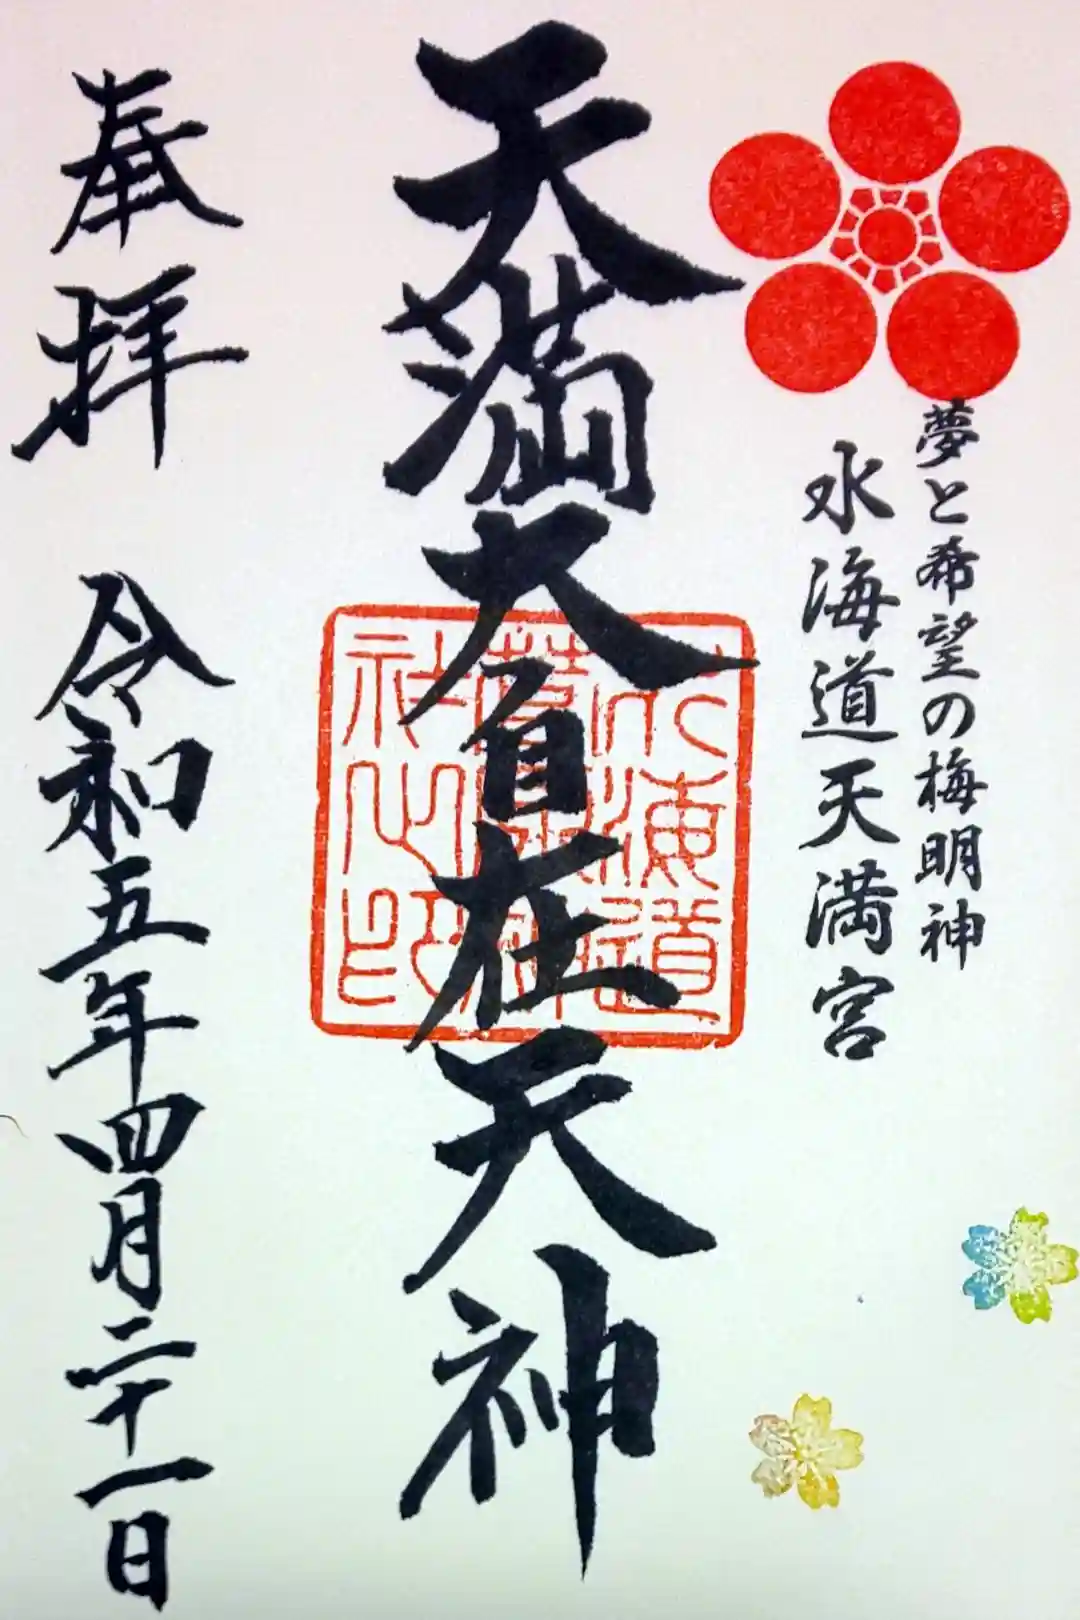 夢と希望の梅明神
水海道天満宮
天満大自在天神
奉拝
令和五年四月二十一日